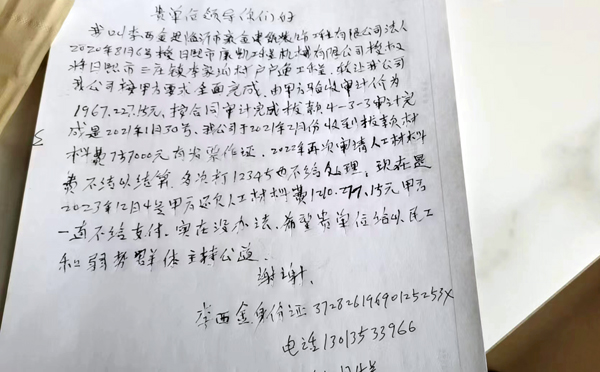 贵单位领导你们好
我叫李西金是临沂市 金建筑装饰工程有限公司法人
2020年8月6号接日照市康凯工程机械有限公司授权
将日照市三庄镇李家沟村户户通工程 转让我公司
我公司按甲方要求全面完成。由甲方验收审计价为
1967.227.15元、按合同审计完成拨款4-3-3审计完
成是2021年1月30号。我公司于2021年2月份收到拨款材
料费737000元有为案作证。2022年再次申请人工材料
费不给以结算 多次打12345也不给处理,现在是
2023年12月4号甲方还欠人工材料费1210.277.15元甲方
一直不给支付。实在没办法。希望贵单位给以民工
和弱势群体主持公道。
谢谢.
李西金身份证:37282619690125253X
电话13013533966